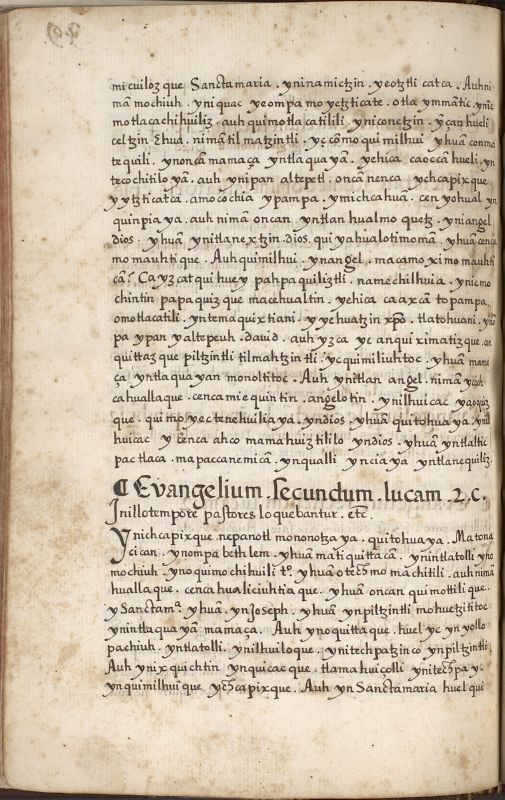 micuiloz que Sanctamaria . yninamictzin . yeotztli catca . Auh ni
mā mochiuh . yniquac yeompa moyetzticate . otla ymmātic . ynic
motlacachihuiliz . auh quimotlacatilili yniconetzin . yçan hueli
celtzin Ehua . nimā tilmatzintli . yc cōmo quimilhui yhuā conmo
tequili . ynoncā mamaça . yntlaquayā . yehica caocca hueli . yn
tecochitiloyā . auh ynipan altepetl . oncā nenca ychcapixque .
yytzticatca . amo cochia ypampa . ymichcahuā . cen yohual yn
quinpiaya . auh nimā oncan . yntlan hualmoquetz . yniangel
dios . yhuā ynitlanextzin . dios . quiyahualotimomā . yhuā cenca
momauhtique . Auh quimilhui . ynangel . macamo ximomauhti
cā? Ca yzcatqui huey pahpaquiliztli . namechilhuia . ynic mo
chintin papaquizque macehualtin . yehica ca axcā topampa
omotlacatili . yntemaquixtiani . yyehuatzin xpō . tlatohuani .
pa ypan yaltepeuh . david . auh yzca yc anquiximatizque . an
quittazque piltzintli tilmahtzintli . yc quimiliuhtoc . yhuā mame
ça yntlaquayan monoltitoc . Auh ynitlan angel . nimā ycuh
cahuallaque . cenca miequintin . angelotin . ynilhuicac yaoquiz
que . quimoyectenehuiliaya . yndios . yhuā quitohuaya . ynil
huicac y cenca ahco mamahuiztililo yndios . yhuā yntlaltic
pactlaca . mapaccanemicā . ynqualli ynciaya yntlanequiliz .
Evangelium . secundum . lucam . 2. C.
Inillo tempore pastores loquebantur . etc .
Ynichcapixque . nepanotl mononotzaya . quitohuaya . Matona
cican . ynompa bethlem . yhuā matiquittacā . ynintlatolli yno
mochiuh . ynoquimochihuili to . yhuā otechmomachitili . auh nimā
huallaque . cenca hualiciuhtiaque . yhuā oncan quimottilique .
y Sanctama . yhuā . ynJoseph . yhuā ynpiltzintli mohuetzititoc
ynintlaquayā mamaça . Auh ynoquittaque . huel yc ynyollo
pachiuh . yntlatolli . ynilhuiloque . ynitechpatzinco ynpiltzintli .
Auh ynixquichtin ynquicacque . tlamahuiçolli ynitechpay .
ynquimilhui que ychcapixque . Auh yn Sanctamaria huel qui